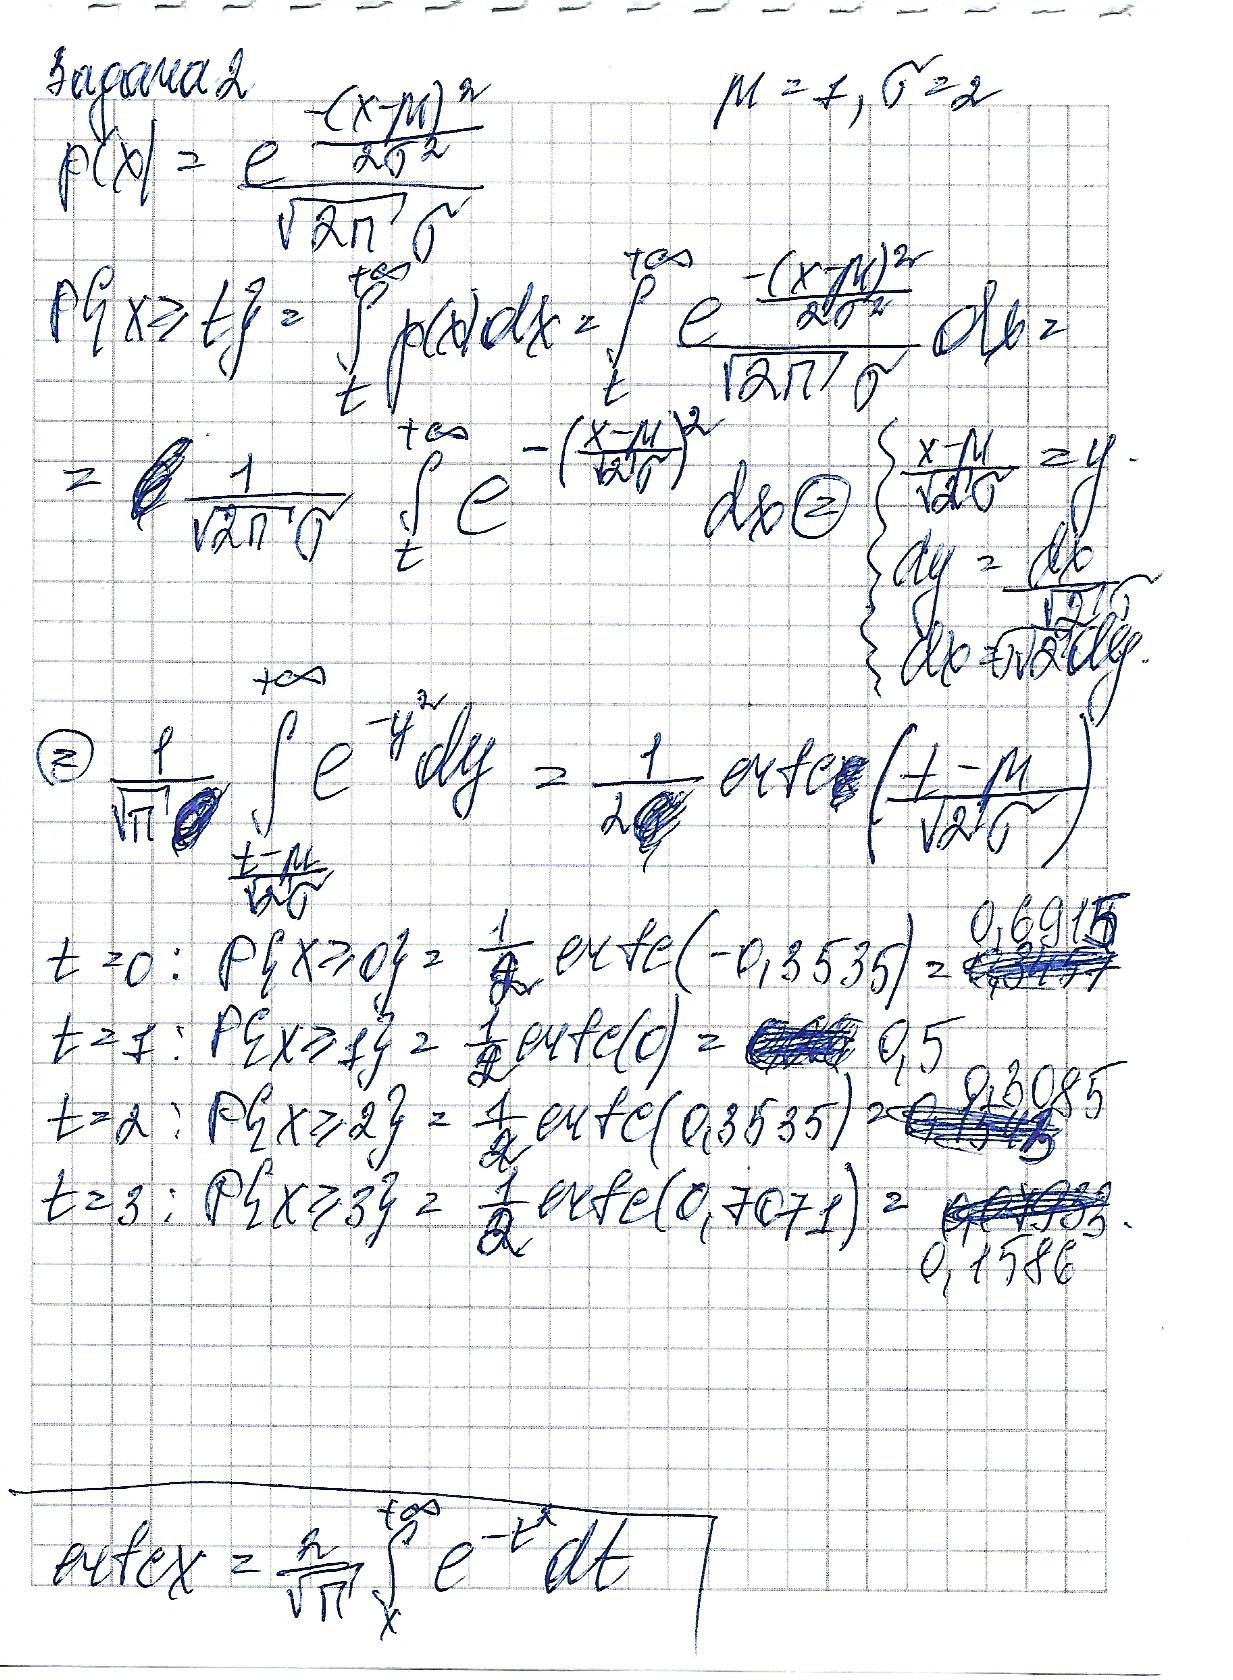 Задача 2
μ = 1, σ = 2
p(x) = e^(-(x-μ)^2/(2σ^2)) / (√(2π) σ)
P{x ≥ t} = ∫_t^{+∞} p(x) dx = ∫_t^{+∞} e^(-(x-μ)^2/(2σ^2)) / (√(2π) σ) dx =
= 1/(√(2π) σ) ∫_t^{+∞} e^(-((x-μ)/(√2 σ))^2) dx ⊜
{ (x-μ)/(√2 σ) = y.
dy = dx/(√2 σ)
dx = σ√2 dy.
⊜ 1/√π ∫_{(t-μ)/(√2 σ)}^{+∞} e^(-y^2) dy = 1/2 erfc((t-μ)/(√2 σ))
t = 0 : P{x ≥ 0} = 1/2 erfc(-0,3535) = 0,6915
t = 1 : P{x ≥ 1} = 1/2 erfc(0) = 0,5
t = 2 : P{x ≥ 2} = 1/2 erfc(0,3535) = 0,3085
t = 3 : P{x ≥ 3} = 1/2 erfc(0,7071) = 0,1586
erfc x = 2/√π ∫_x^{+∞} e^(-t^2) dt